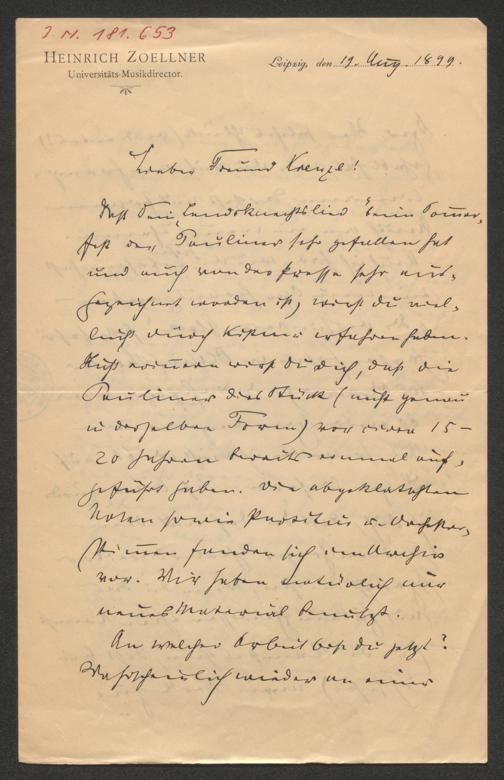 I. N. 181.653
HEINRICH ZOELLNER
Universitäts-Musikdirector.
Leipzig, den 19. Aug. 1899.
Lieber Freund Krenze!
Daß Dein „Landsknechtslied" beim Sommer-
fest der Pauliner sehr gefallen hat
und auch von der Presse sehr aus-
gezeichnet worden ist, wirst du viel-
leicht durch erfahren haben.
Auch erinnern wirst Du Dich, daß die
Pauliner dies Stück (nicht genau
in derselben Form) vor circa 15-
20 Jahren bereits einmal auf-
geführt haben. Die abgeklatschten
Noten sowie Partitur u. Orchester-
stimmen fanden sich im Archiv
vor. Wir haben natürlich nur
neues Material benutzt.
An welcher Arbeit bist du jetzt?
Wahrscheinlich wieder an einer